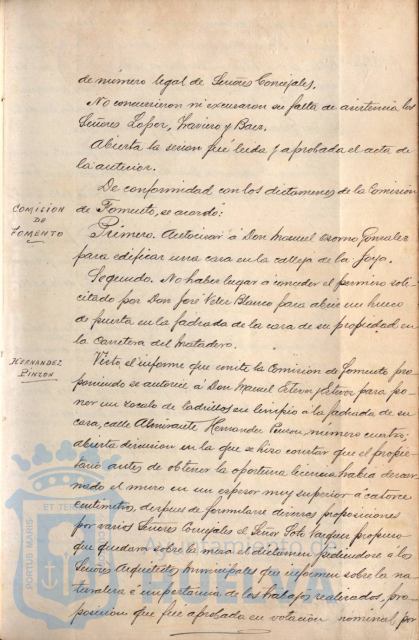 de número legal de Señores Concejales.
No concurrieron ni excusaron su falta de asistencia los
Señores Lopez, Traviero y Baez.
Abierta la sesion fué leida y aprobada el acta de
la anterior.
De conformidad con los dictamenes de la Comisión
COMISION
DE
FOMENTO
de Fomento, se acordó:
Primero. Autorizar á Don Manuel Osorno Gonzalez
para edificar una casa en la calleja de la Joya.
Segundo. No haber lugar á conceder el permiso soli-
citado por Don José Veler Blanco para abrir un hueco
de puerta en la fachada de la casa de su propiedad en
la Carretera del Matadero.
HERNANDEZ
PINZON
Visto el informe que emite la Comisión de Fomento pro-
poniendo se autorice á Don Manuel Esteve y Esteve para po-
ner un zocalo de ladrillos en limpio á la fachada de su
casa, calle Almirante Hernandez Pinzon, número cuatro,
abierta discusion en la que se hizo constar que el propie-
tario antes de obtener la oportuna licencia habia descar-
nado el muro en un espesor muy superior á catorce
centimetros, despues de formularse diversas proposiciones
por varios Señores Concejales el Señor Soto Vazquez propuso
que quedara sobre la mesa el dictamen pidiendose á los
Señores Arquitectos municipales que informen sobre la na-
turaleza é importancia de los trabajos realizados, pro-
posicion que fué aprobada en votación nominal, por
PORTUS MARIS
ET TERRAE